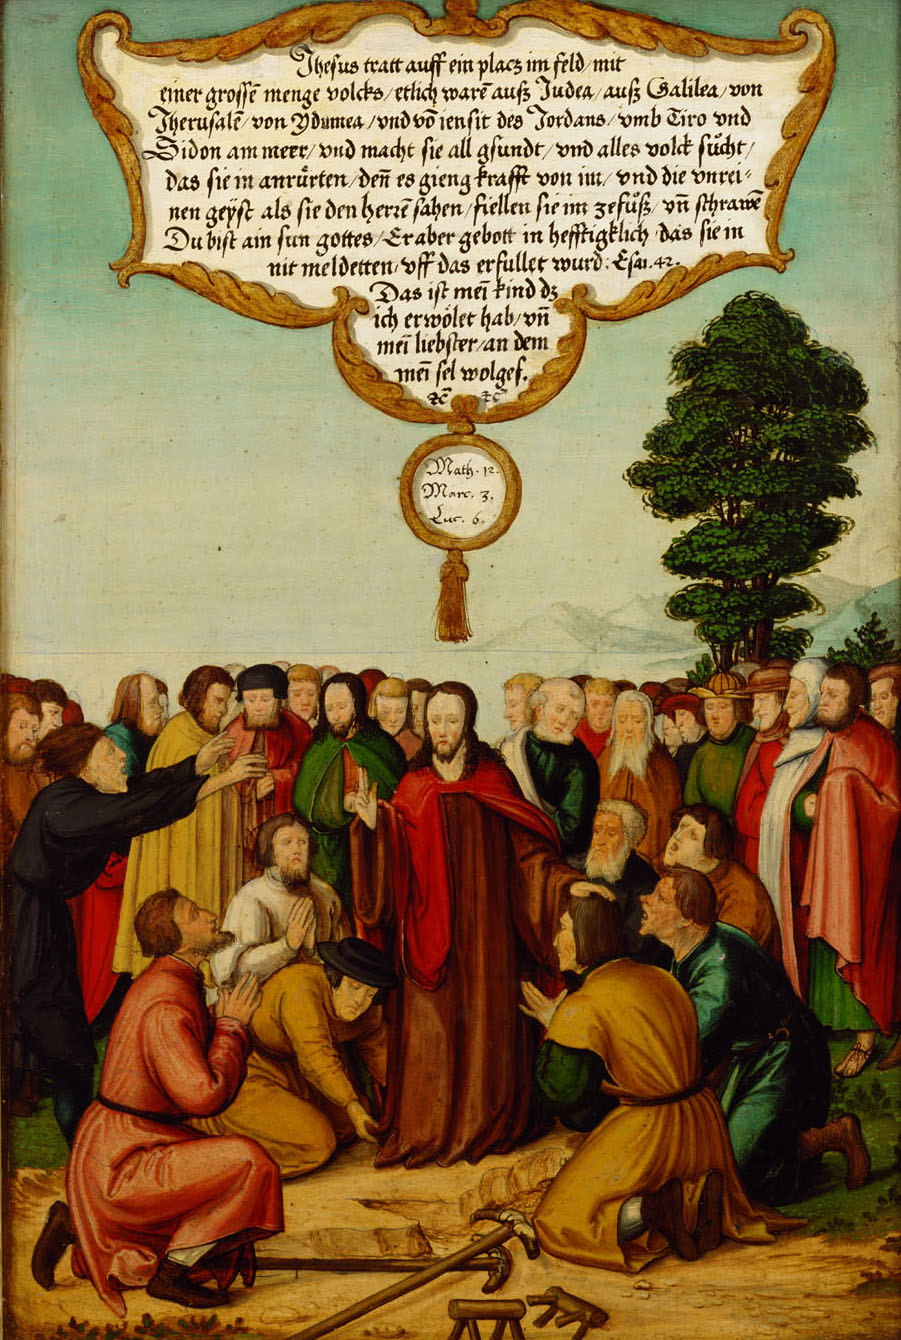 Jhesus tratt auff ein placz im feld/ mit
einer grossẽ menge volcks/ etlich warẽ auß Judea/ auß Galilea/ von
Jherusalẽ/ von Ydumea/ vnd võ iensit des Jordans/ vmb Tiro vnd
Sidon am meer/ vnd macht sie all gsundt/ vnd alles volck sůcht/
das sie in anrůrten/ deñ es gieng krafft von im/ vnd die vnrei⸗
nen geyst als sie den herrẽ sahen/ fiellen sie im zefůß/ vñ schrawẽ
Du bist ain sun gottes/ Er aber gebott in hefftigklich das sie in
nit meldetten/ vff das erfullet wurd: Esai. 42.
Das ist mei᷍ kind dz
ich erwölet hab/ vñ
mei᷍ liebster/ an dem
mei᷍ sel wolgef.
ꝛc̃ ꝛc̃
Math. 12.
Marc. 3.
Luc. 6.